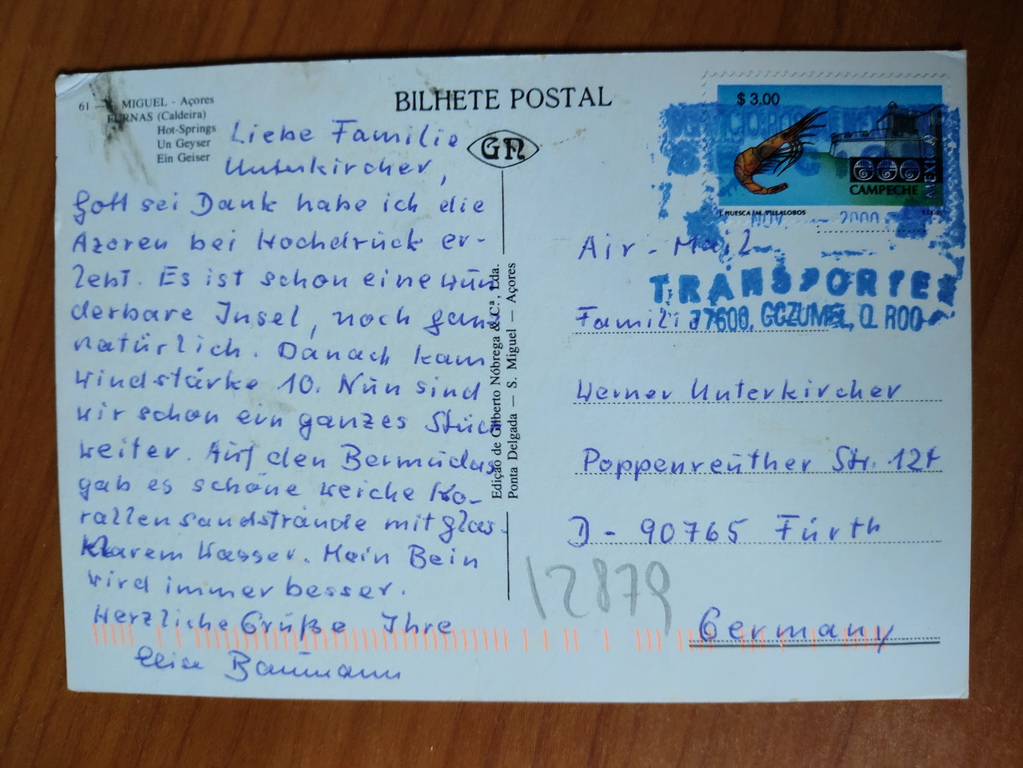 61 — MIGUEL - Açores
FURNAS (Caldeira)
Hot-Springs
Un Geyser
Ein Geiser
BILHETE POSTAL
GN
Liebe Familie
Unterkircher,
Gott sei Dank habe ich die
Azoren bei Hochdruck er-
lebt. Es ist schon eine wun
derbare Insel, noch ganz
natürlich. Danach kam
Windstärke 10. Nun sind
wir schon ein ganzes Stück
weiter. Auf den Bermudas
gab es schöne weiche Ko-
rallensandstrände mit glas-
klarem Wasser. Mein Bein
wird immer besser.
Herzliche Grüße Ihre
Elise Baumann
Edição de Gilberto Nóbrega & C.ª, Lda.
Ponta Delgada — S. Miguel — Açores
$ 3.00
CAMPECHE
MEXICO
HUESCA / M. VILLALOBOS
NOV 2000
TRANSPORTE
77600, COZUMEL, Q. ROO
Air-Mail
Familie
Werner Unterkircher
Poppenreuther Str. 127
D-90765 Fürth
12879
Germany